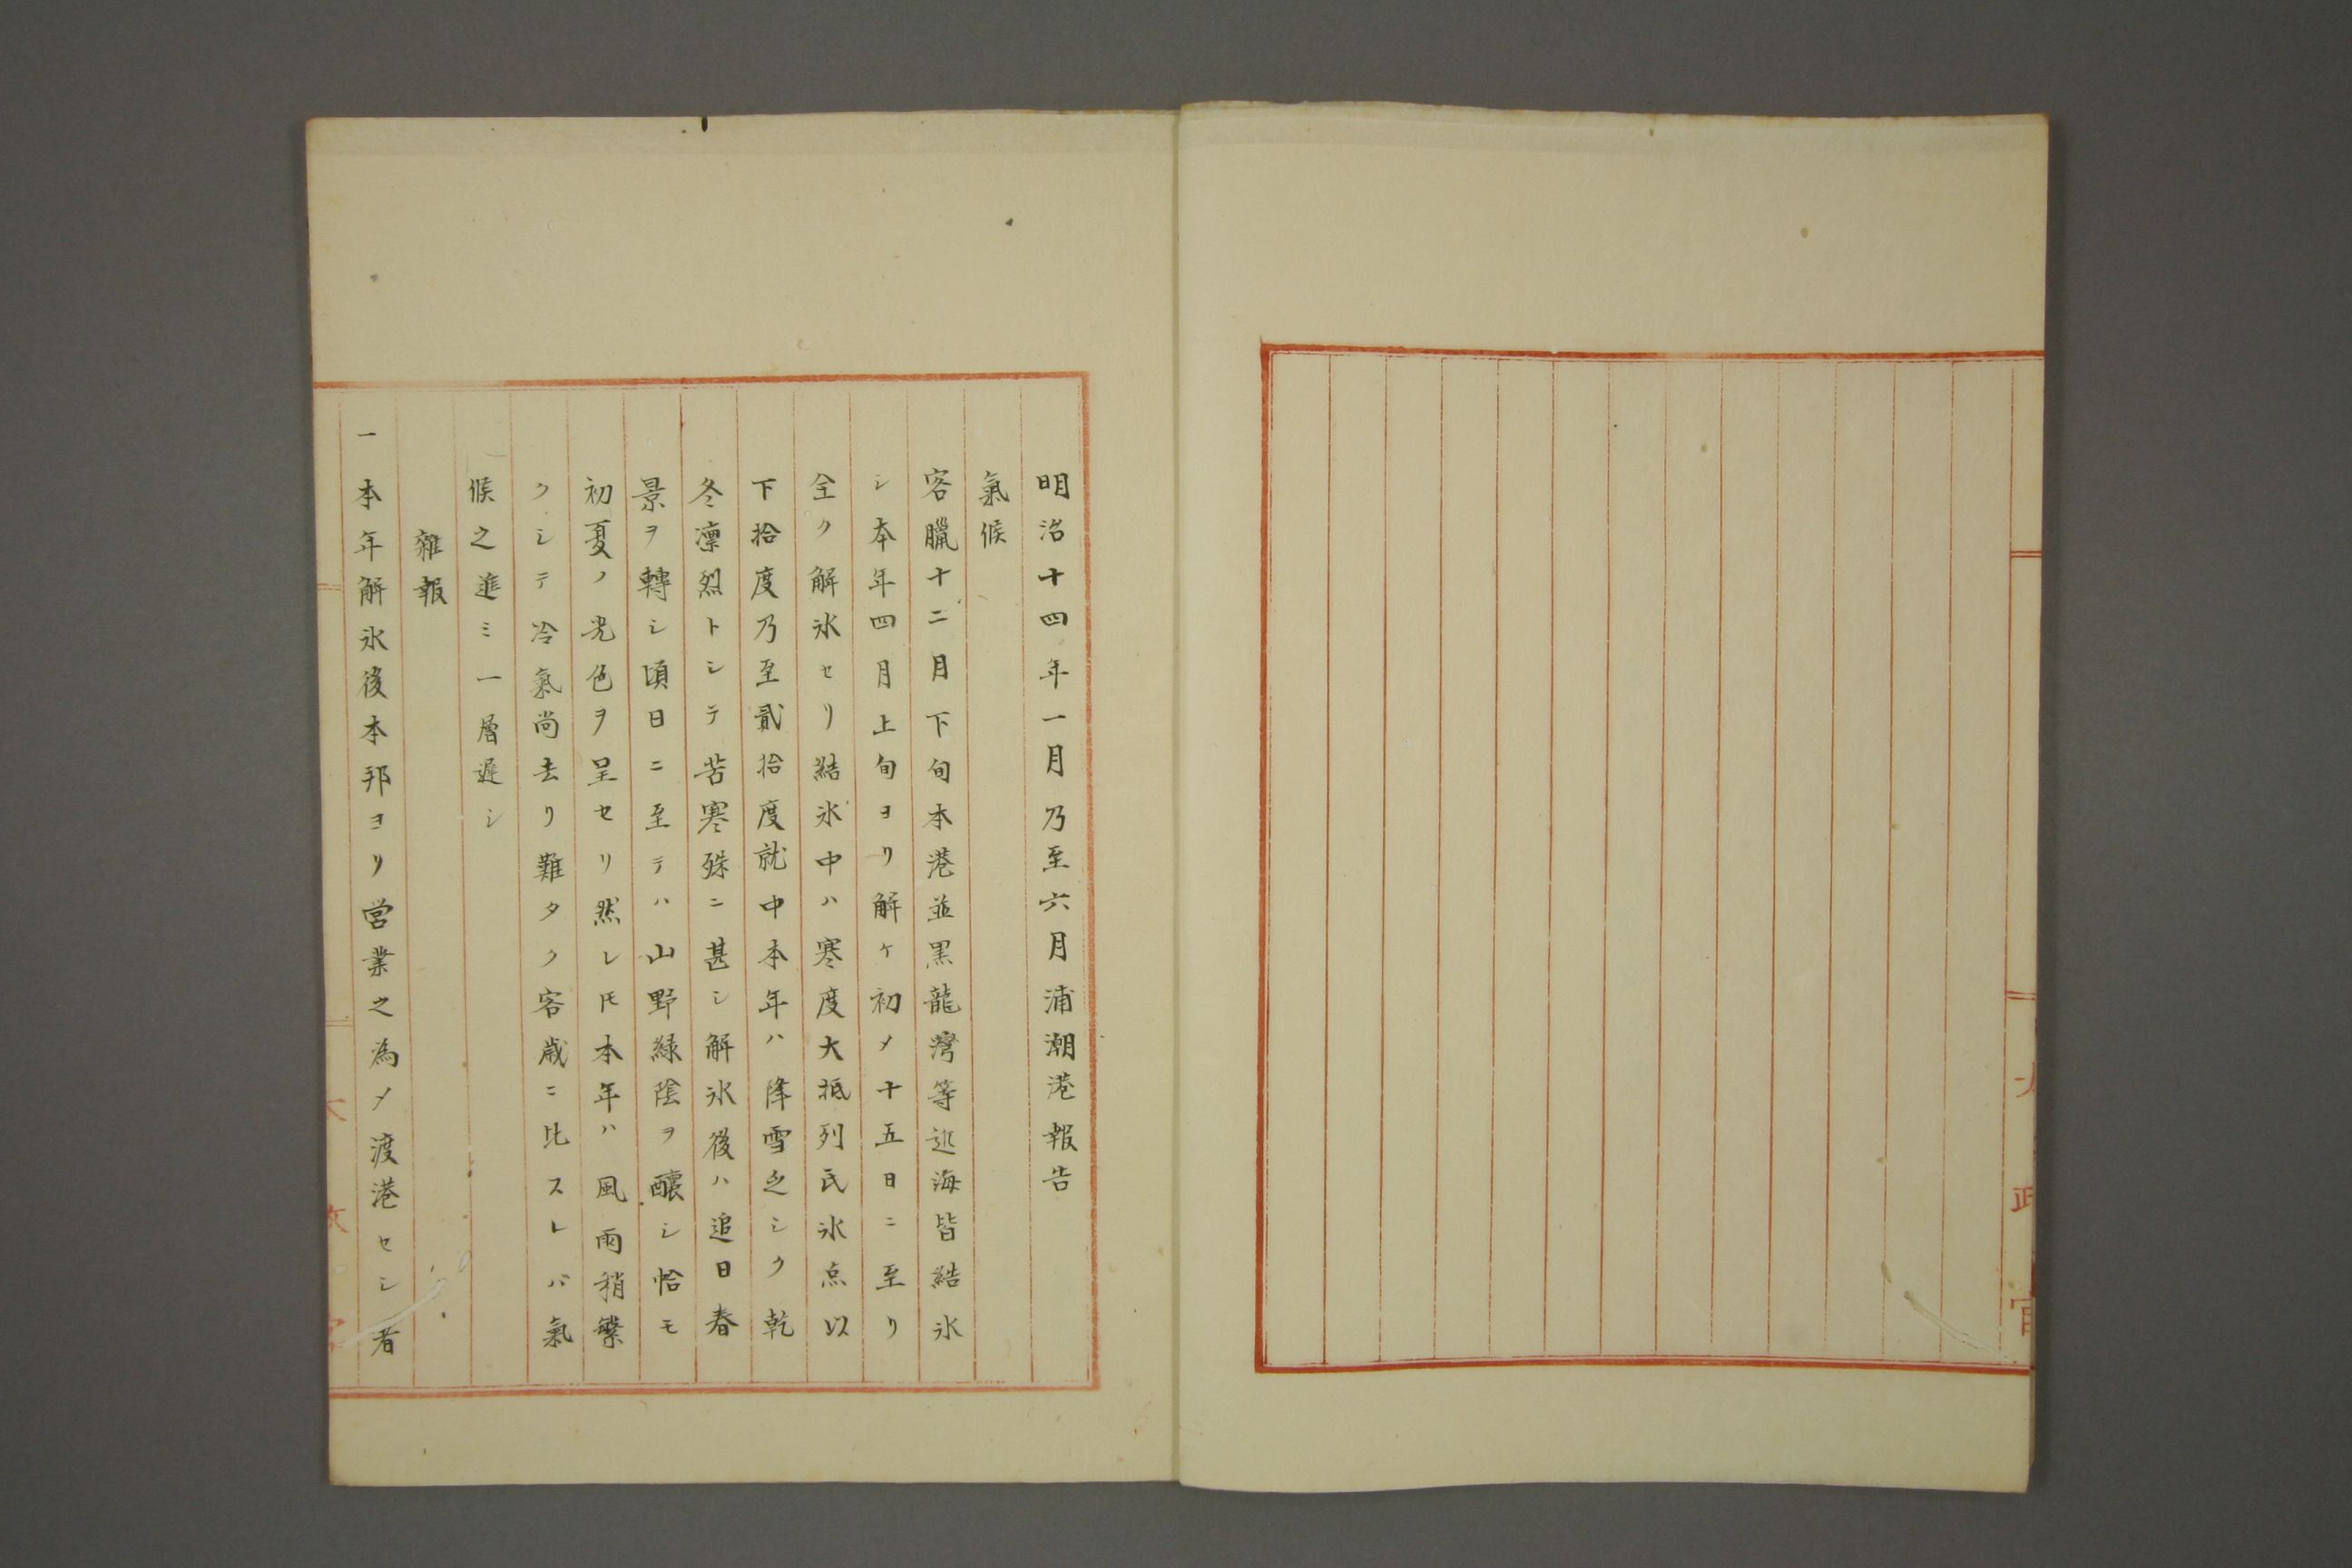 太政官
明治十四年一月乃至六月浦潮港報告
氣候
客臘十二月下旬本港並黒龍灣等近海皆結氷
シ本年四月上旬ヨリ解ケ初メ十五日ニ至リ
全ク解氷セリ結氷中ハ寒度大抵列氏氷点以
下拾度乃至貳拾度就中本年ハ降雪乏シク乾
冬凛烈トシテ苦寒殊ニ甚シ解氷後ハ追日春
景ヲ轉シ頃日ニ至テハ山野緑陰ヲ醸シ恰モ
初夏ノ光色ヲ呈セリ然レ𪜈本年ハ風雨稍繁
クシテ冷氣尚去リ難タク客歳ニ比スレバ氣
候之進ミ一層遅シ
雜報
一本年解氷後本邦ヨリ営業之為メ渡港セシ者